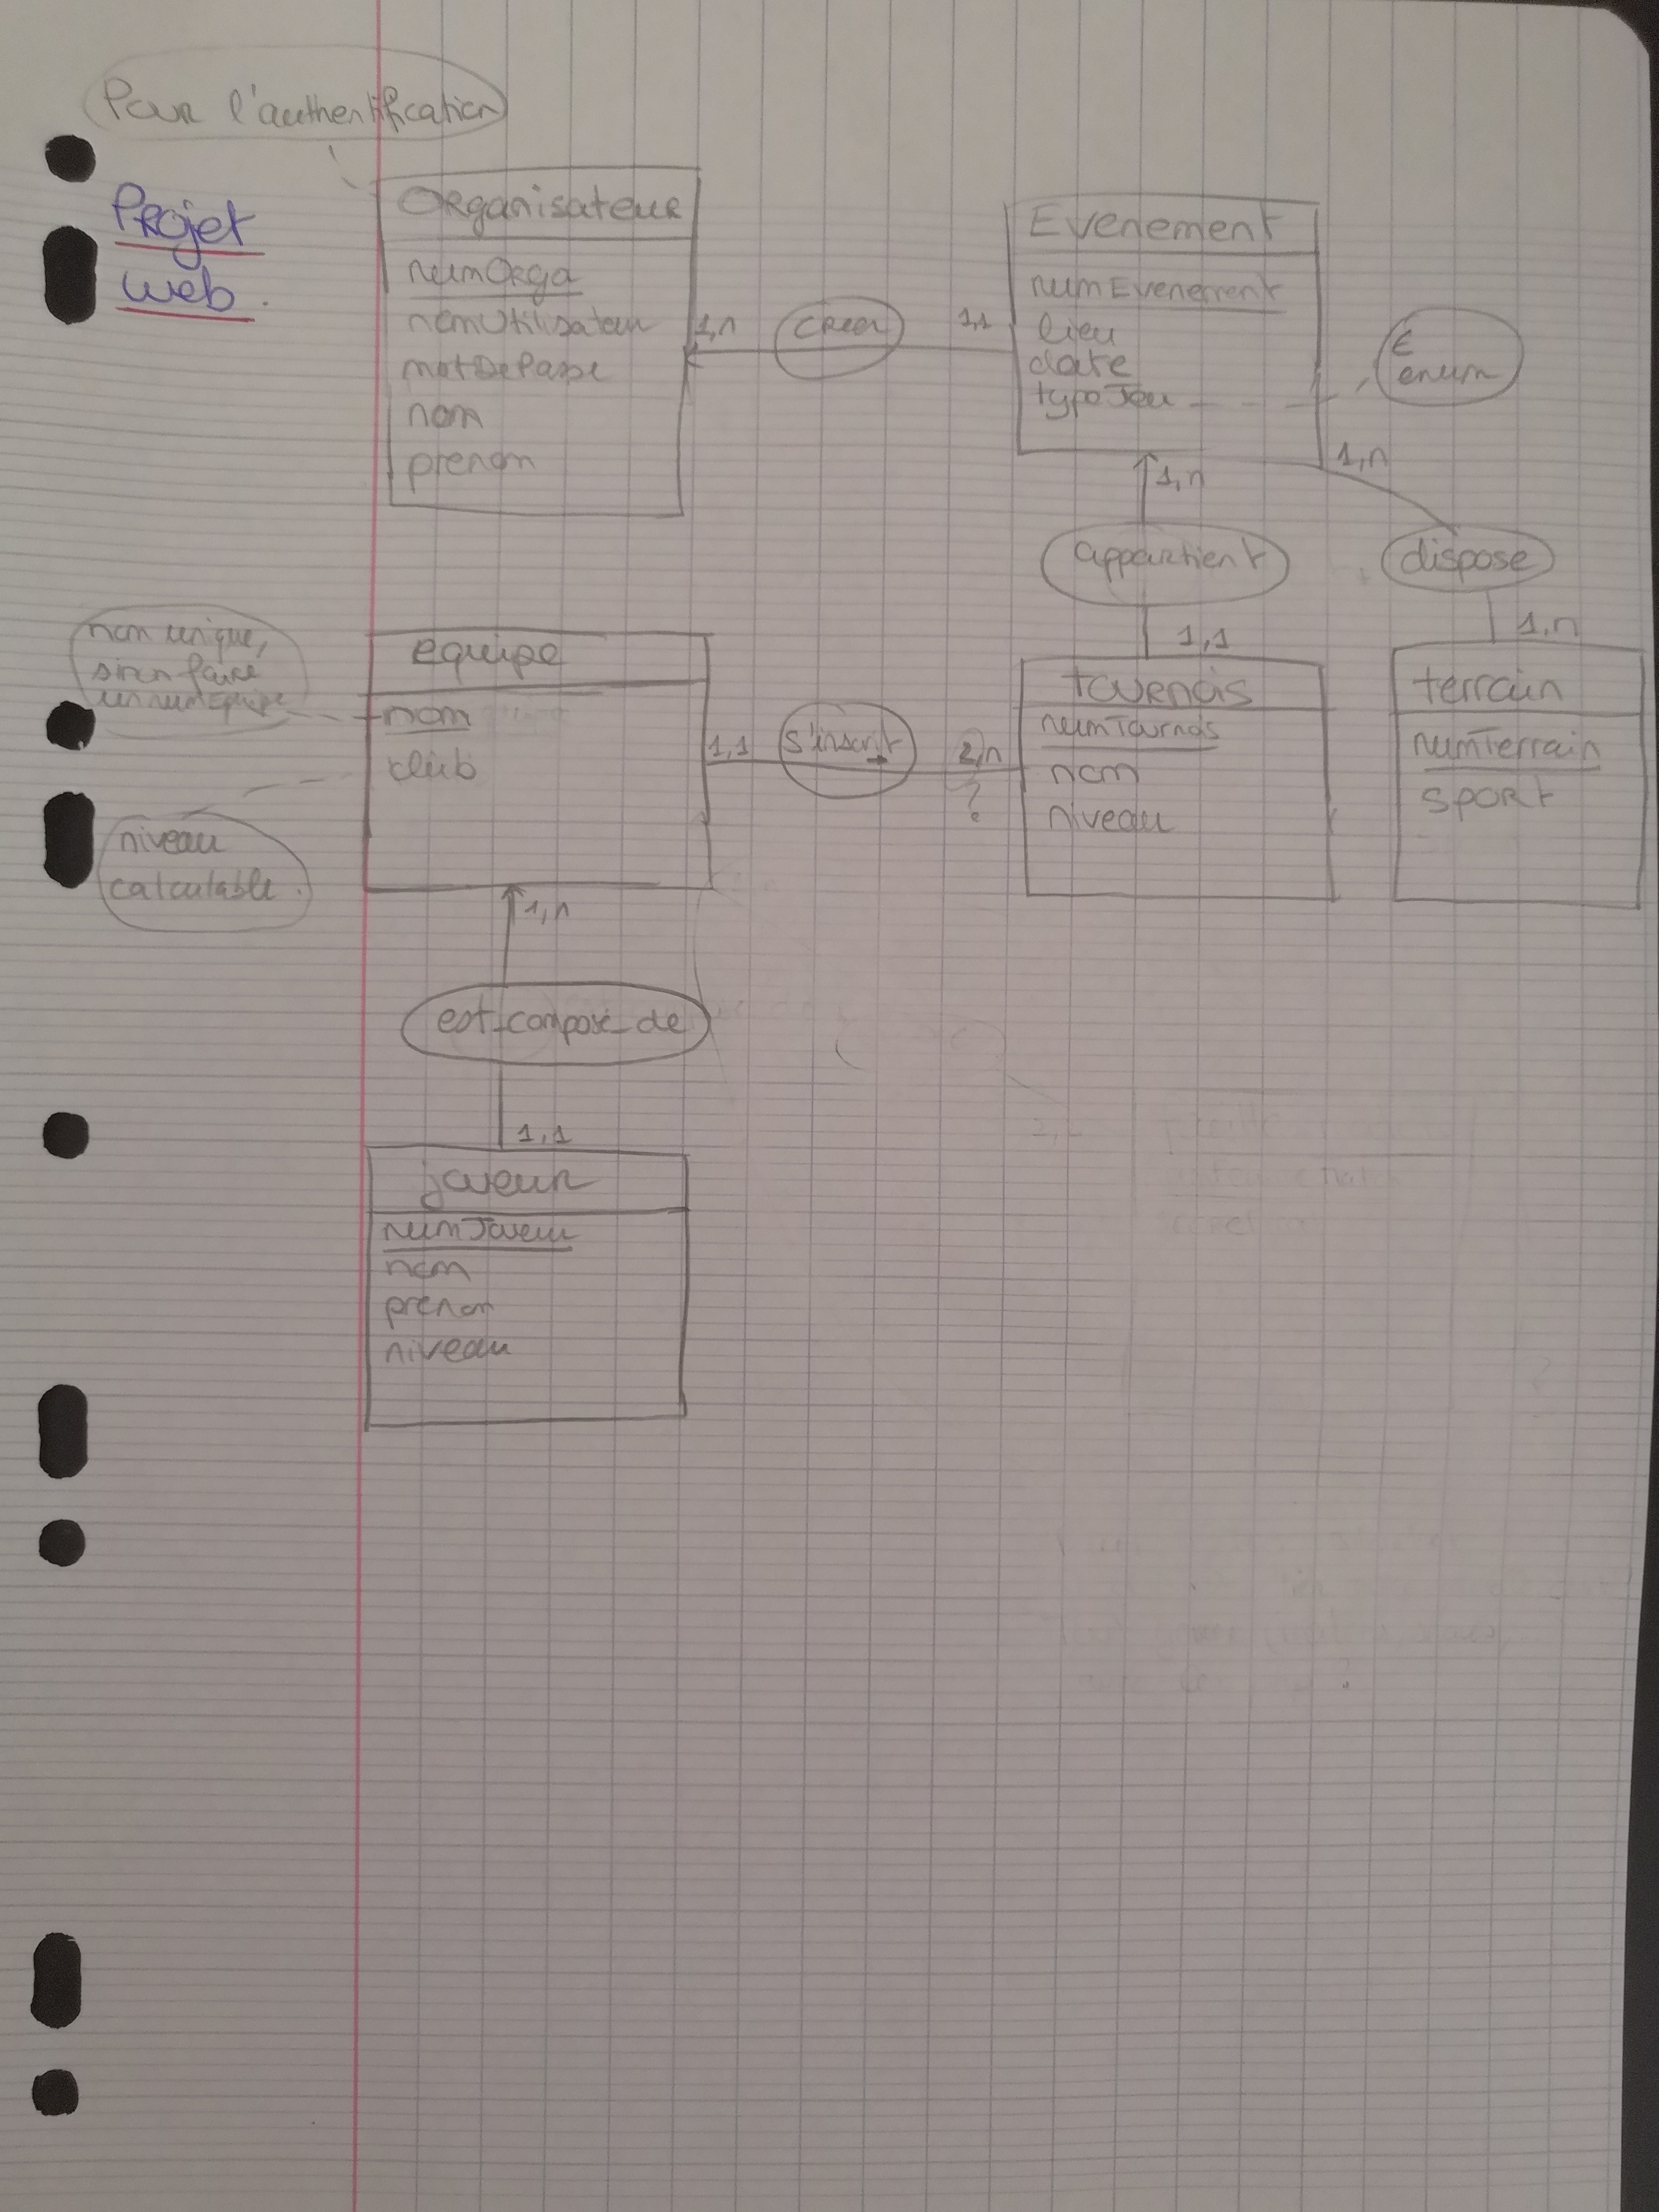 Pour l'authentification
Projet
web.
Organisateur
numOrga
nomUtilisateur
motDePasse
nom
prenom
1,n
creer
1,1
Evenement
numEvenement
lieu
date
typeJeu
∈
enum
1,n
appartient
1,1
1,n
dispose
1,n
nom unique,
sinon faire
un numEquipe
equipe
nom
club
niveau
calculable.
1,1
s'inscrit
2,n
?
tournois
numTournois
nom
niveau
terrain
numTerrain
sport
1,n
est_composé_de
1,1
joueur
numJoueur
nom
prenom
niveau